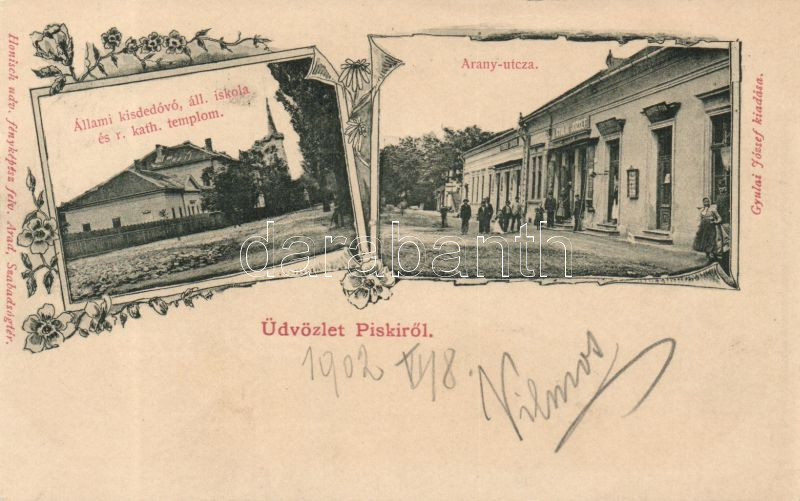 Állami kisdedóvó, áll. iskola
és r. kath. templom.
Arany-utcza.
Honisch udv. fényképész felv. Arad, Szabadságtér.
Gyulai József kiadása.
darabanth
Üdvözlet Piskiről.
1902 VI/8. Vilmos